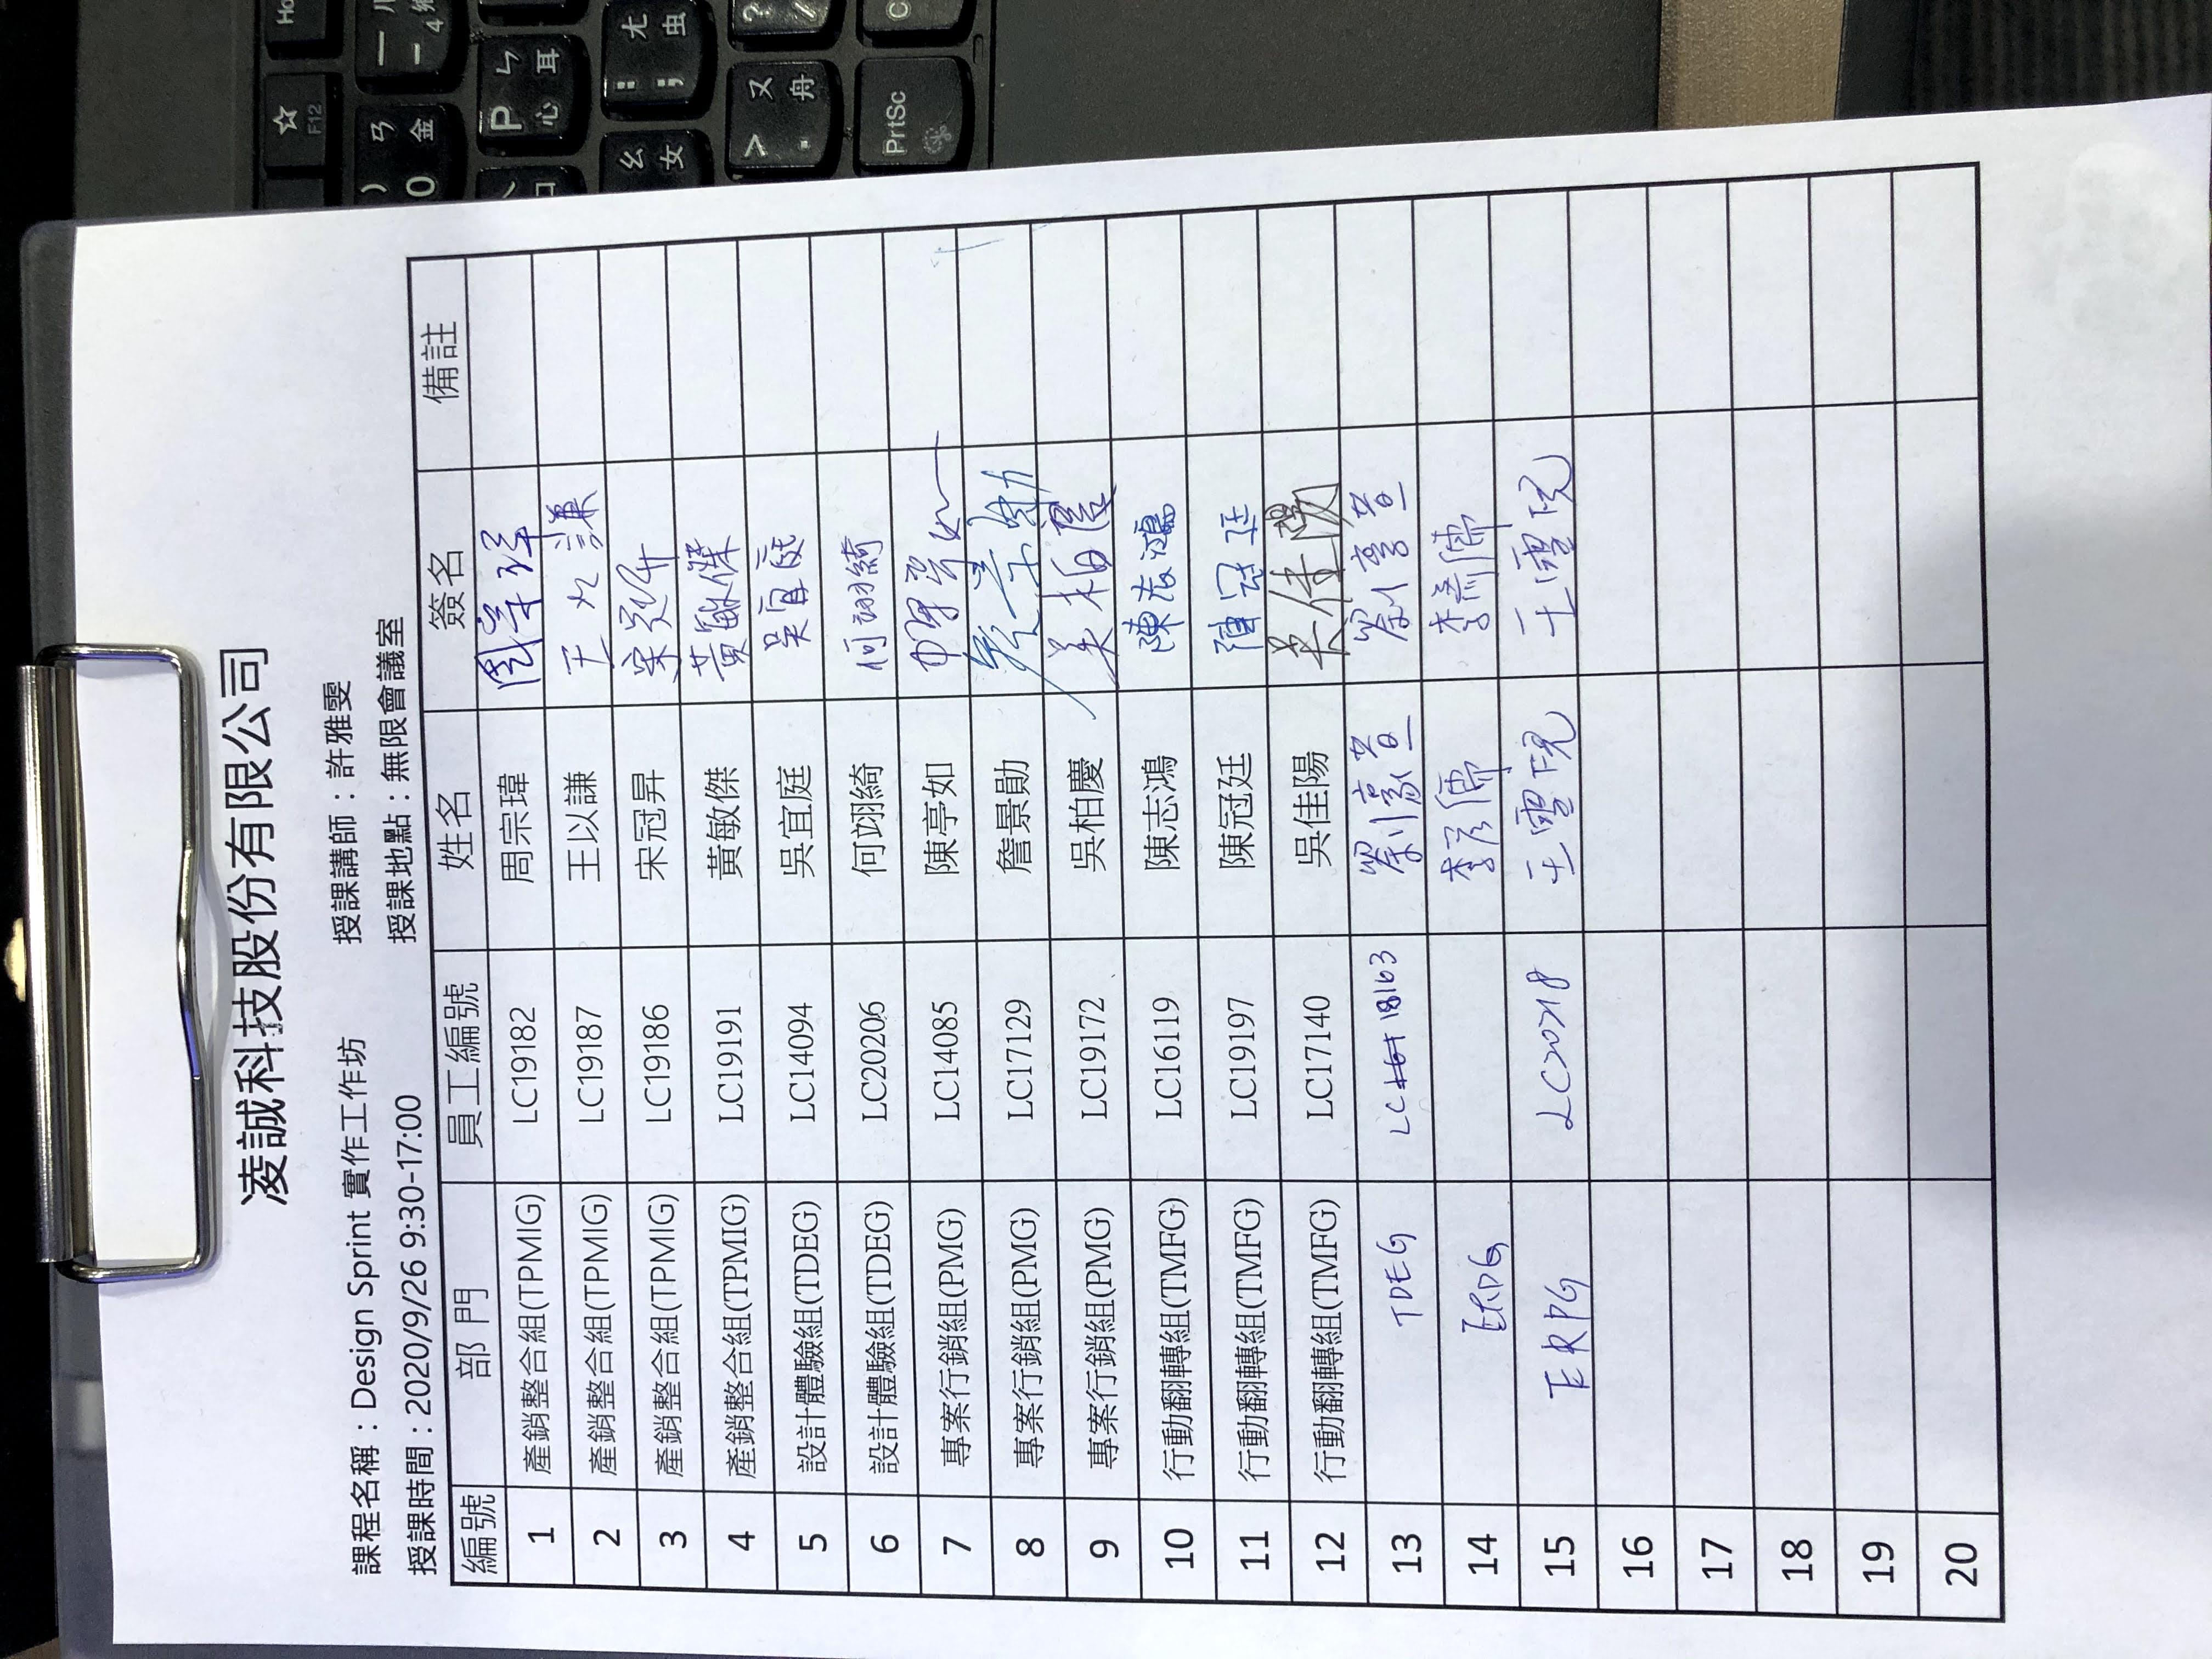 凌誠科技股份有限公司
課程名稱：Design Sprint 實作工作坊 授課講師：許雅雯
授課時間：2020/9/26 9:30-17:00 授課地點：無限會議室
編號 部 門 員工編號 姓名 簽名 備註
1 產銷整合組(TPMIG) LC19182 周宗瑋 周宗瑋
2 產銷整合組(TPMIG) LC19187 王以謙 王以謙
3 產銷整合組(TPMIG) LC19186 宋冠昇 宋冠昇
4 產銷整合組(TPMIG) LC19191 黃敏傑 黃敏傑
5 設計體驗組(TDEG) LC14094 吳宜庭 吳宜庭
6 設計體驗組(TDEG) LC20206 何翊綺 何翊綺
7 專案行銷組(PMG) LC14085 陳亭如 陳亭如
8 專案行銷組(PMG) LC17129 詹景勛 詹景勛
9 專案行銷組(PMG) LC19172 吳柏慶 吳柏慶
10 行動翻轉組(TMFG) LC16119 陳志鴻 陳志鴻
11 行動翻轉組(TMFG) LC19197 陳冠廷 陳冠廷
12 行動翻轉組(TMFG) LC17140 吳佳陽 吳佳陽
13 TDEG LC 18163 劉豪萱 劉豪萱
14 李彥儒 李彥儒
15 ERPG LC20218 王雪
16
17
18
19
20
F12
ㄢ 金
P ㄣ 心 耳
ㄠ 女
; ㄤ 虫
> . ㄡ 舟
?
PrtSc